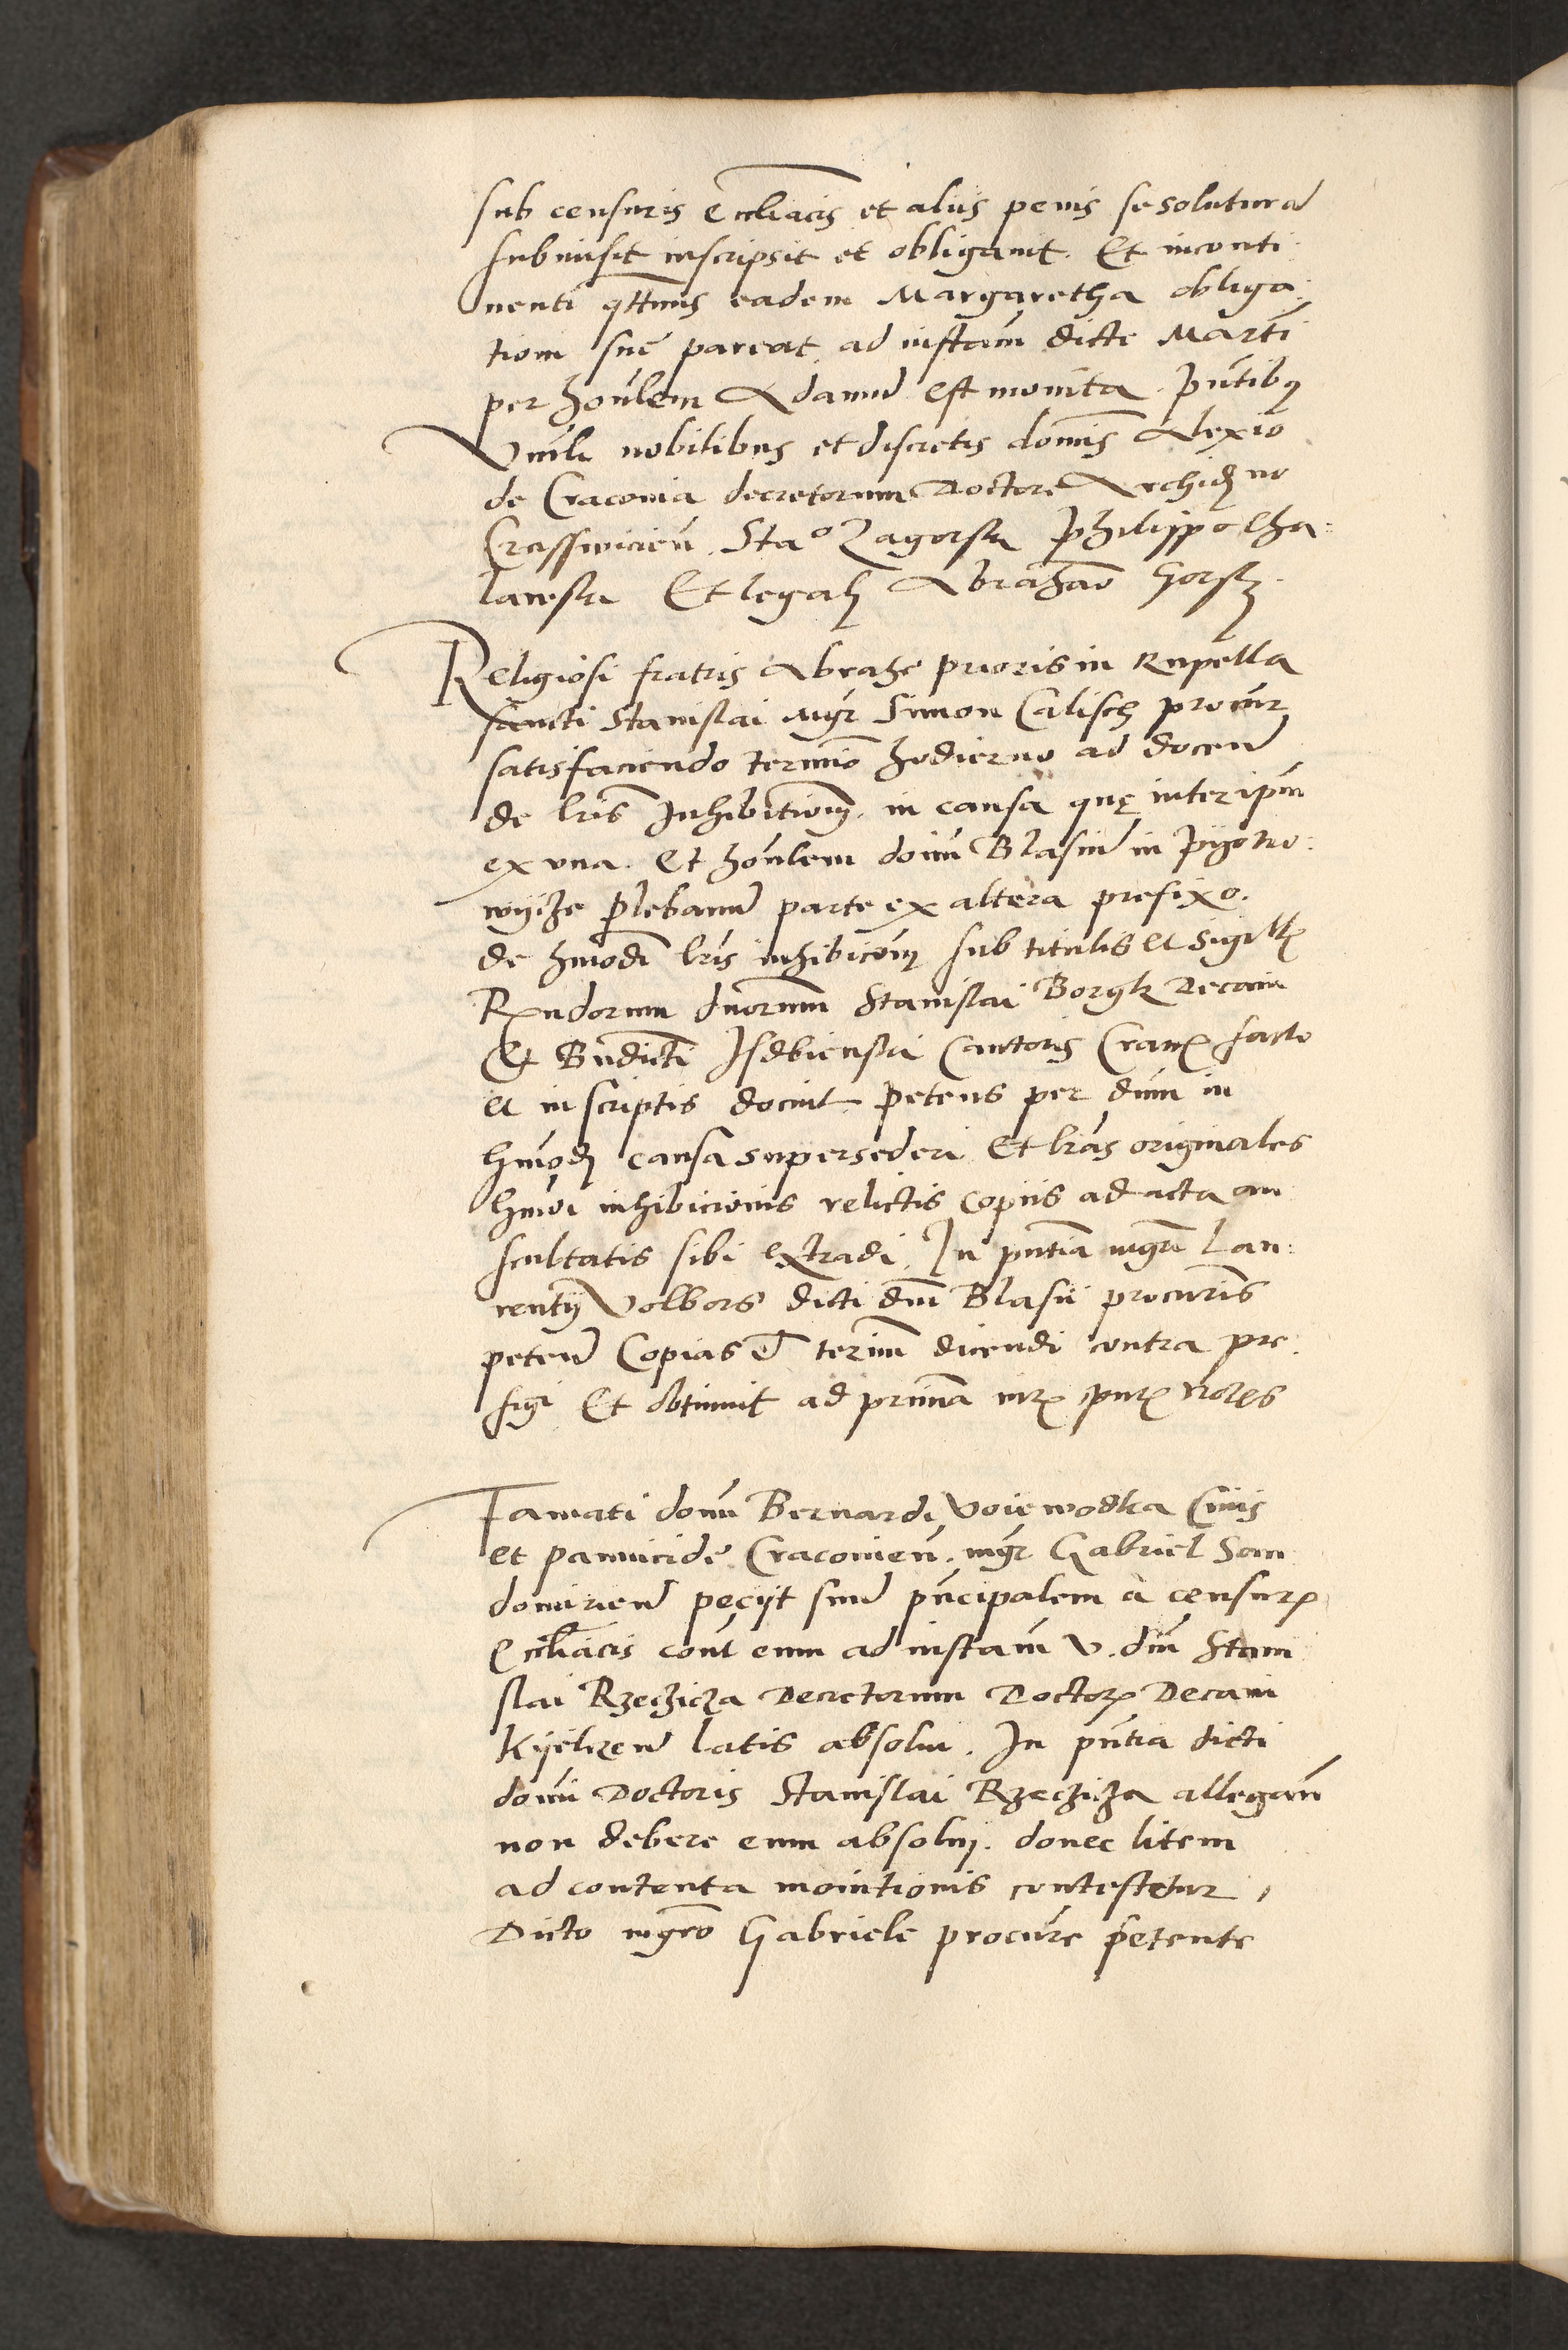 sub censuris eccliacis et aliis penis se soluturā
submisit inscripsit et obligavit. Et inconti
nenti qttnus eadem Margaretha obliga:
tioni sue pareat ad instam dicte Marti
per honlem Adamū est monita. Pntibus
Vnli nobilibus et discretis domis Alexio
de Cracovia decretorum Doctore Archidno
Crasswicien. Stao Zagorski Philippo Cha:
lawski Et legali Abrahao Gorski.
Religiosi fratris Abrahe prioris in Rupella
sancti Stanislai mgr Simon Calisch procur
satisfaciendo termio hodierno ad docen
de lris Inhibitionis. in causa que inter ipm
ex vna. Et honlem domi Blasiū in Pyotro:
wycze plebanū parte ex altera prefixo.
de hmodi lris inhibicois sub titulis et sigillis
Rendorum dnorum Stanislai Borgk Decani
Et Bndicti Isdbienski Cantoris Cracn facto
et in scriptis docuit petens per dnm in
hmodi causa supersederi Et lras originales
hmoi inhibicionis relictis copiis ad acta au
scultatis sibi extradi. In pntia mgri Lau:
rentij Volbors dicti dni Blasii procuris
peten Copias et termi dicendi contra pre:
figi Et obtinuit ad prima iur. pnt. Notes
Famati domi Bernardi Voiewodka Civis
et pannicide Cracovien. mgr Gabriel San
domirien pecijt suū principalem a censuris
Eccliacis cont eum ad instam V. dni Stani
slai Rzeczicza Decretorum Doctoris Decani
Kyelczen latis absolui. In pntia dicti
domi Doctoris Stanislai Rzeczicza allegan
non debere eum absolui. donec litem
ad contenta monitionis contestetur,
Dicto mgro Gabriele procure petente